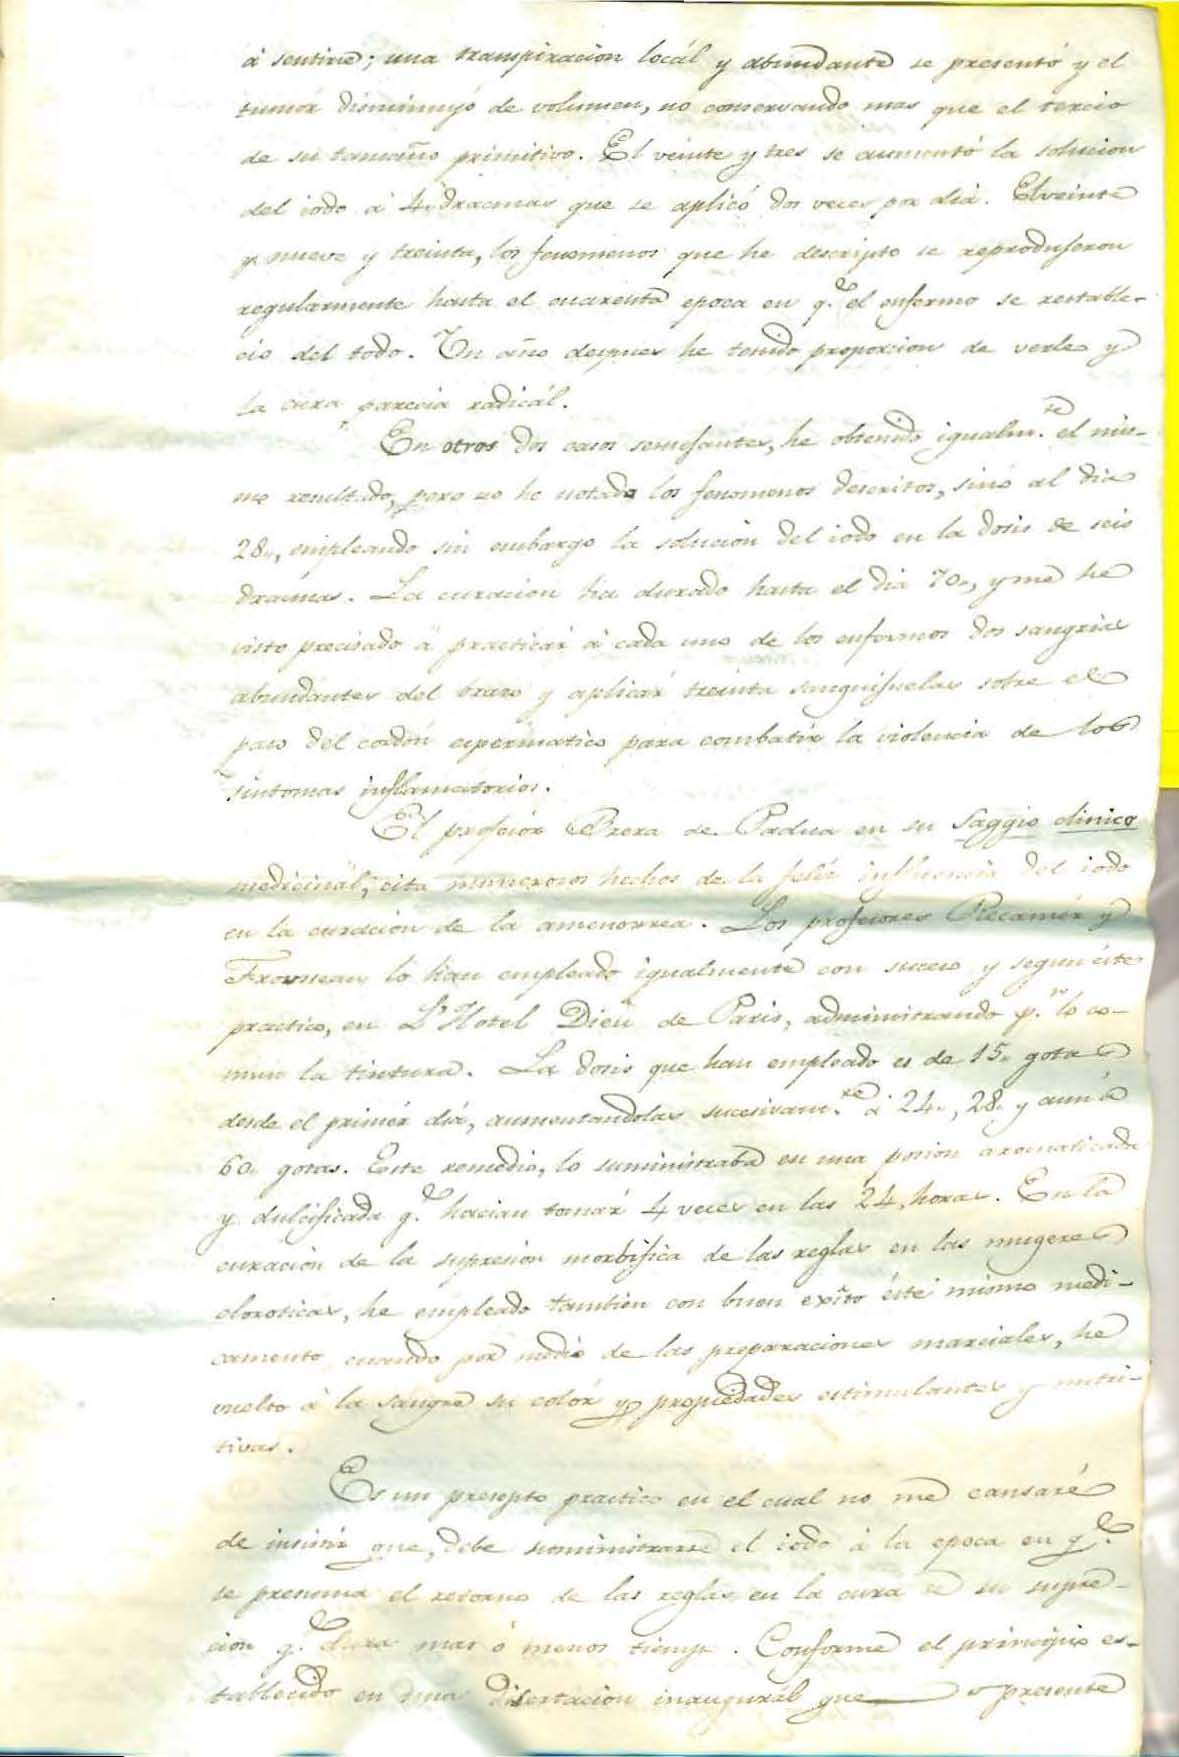 á sentirse; una transpiracion locál y abundante se presentó y el
tumór disminuyó de volumen, no conservando mas que el tercio
de su tamaño primitivo. El veinte y tres se aumentó la solucion
del iodo á 4. dracmas que se aplicó dos veces por dia. El veinte
y nueve y treinta, los fenomenos que he descripto se reprodujeron
regularmente hasta el cuarenta epoca en q.e el enfermo se restable-
ció del todo. Un año despues he tenido proporcion de verle y
la cura parecia radicál.
En otros dos casos semejantes, he obtenido igualm.te el mis-
mo resultado, pero no he notado los fenomenos descritos, sinó al dia
28., empleando sin embargo la solucion del iodo en la dosis de seis
dracmas. La curacion ha durado hasta el dia 70., y me he
visto precisado á practicár á cada uno de los enfermos dos sangrias
abundantes del brazo y aplicár treinta sanguijuelas sobre el
paso del cordón espermatico para combatir la violencia de los
sintomas inflamatorios.
El profesór Brera de Padua en su Saggio clinico
medicinál, cita numerosos hechos de la feliz influencia del iodo
en la curacion de la amenorrea. Los profesores Recamiér y
lo han empleado igualmente con suceso y segun éste
practico, en L'Hotel Dieu de Paris, administrando p.r lo co-
mun la tintura. La dosis que han empleado es de 15. gotas
desde el primér dia, aumentandolas sucesivam.te á 24., 28. y aun á
60. gotas. Este remedio, lo suministraba en una posion aromaticada
y dulcificada q.e hacian tomár 4 veces en las 24. horas. En la
curacion de la supresion morbifica de las reglas en las mugeres
cloroticas, he empleado tambien con buen exito éste mismo medi-
camento, cuando por medio de las preparaciones marciales, he
vuelto á la sangre su colór y propiedades estimulantes y nutri-
tivas.
Es un precepto practico en el cual no me cansaré
de insistir que, debe suministrarse el iodo á la epoca en q.e
se presuma el retorno de las reglas en la cura de su supre-
cion q.e dura mas ó menos tiempo. Conforme el principio es-
tablecido en una disertacion inaugurál que presente